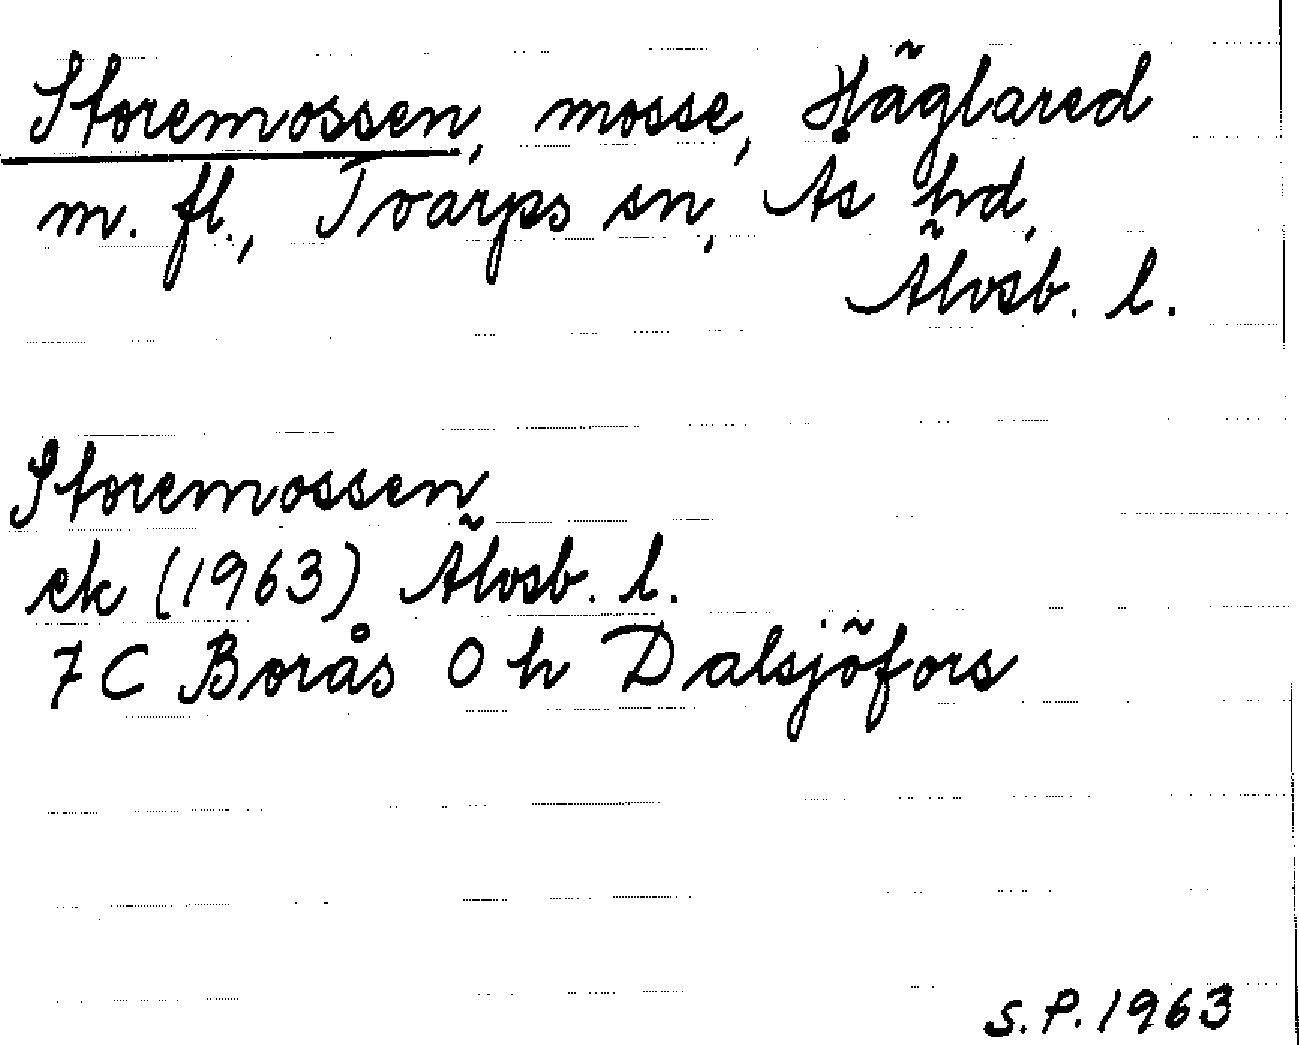 Storemossen, mosse, Häglared
m. fl., Tvarps sn, Ås hd,
Älvsb. l.
Storemossen
ek (1963) Älvsb. l.
7 C Borås 0 h Dalsjöfors
S.P. 1963